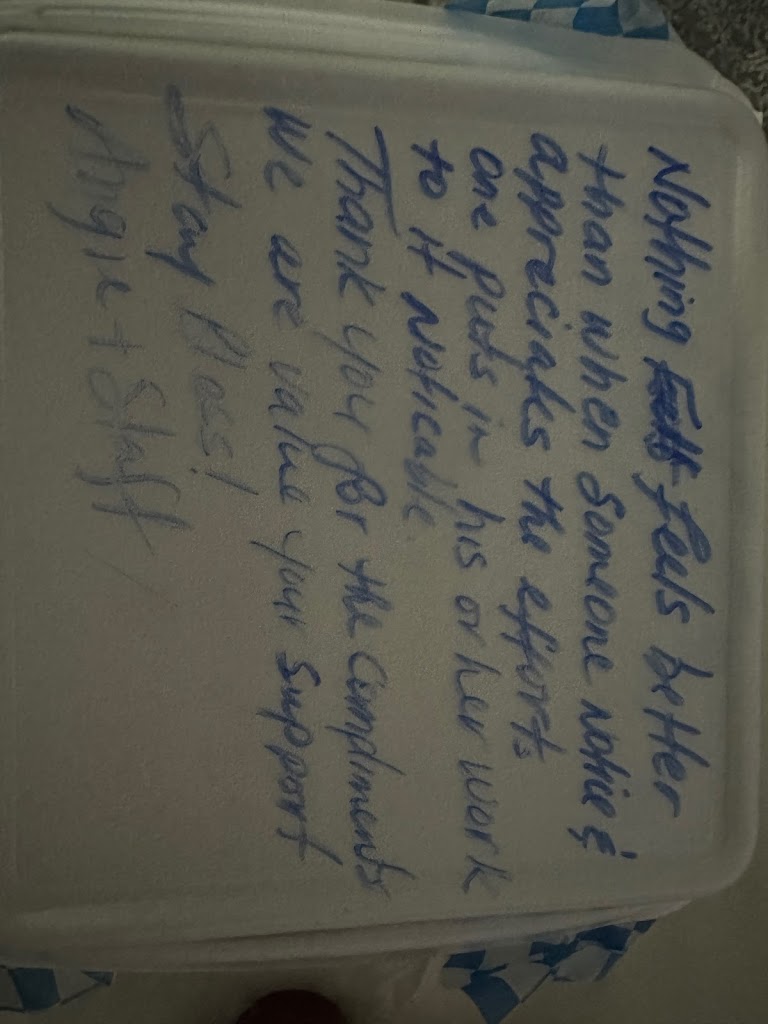 Nothing feels better
than when someone notice &
appreciates the efforts
one puts in his or her work
to it noticable.
Thank you for the compliments
We are value your support
Stay Bless!
Angie + Staff